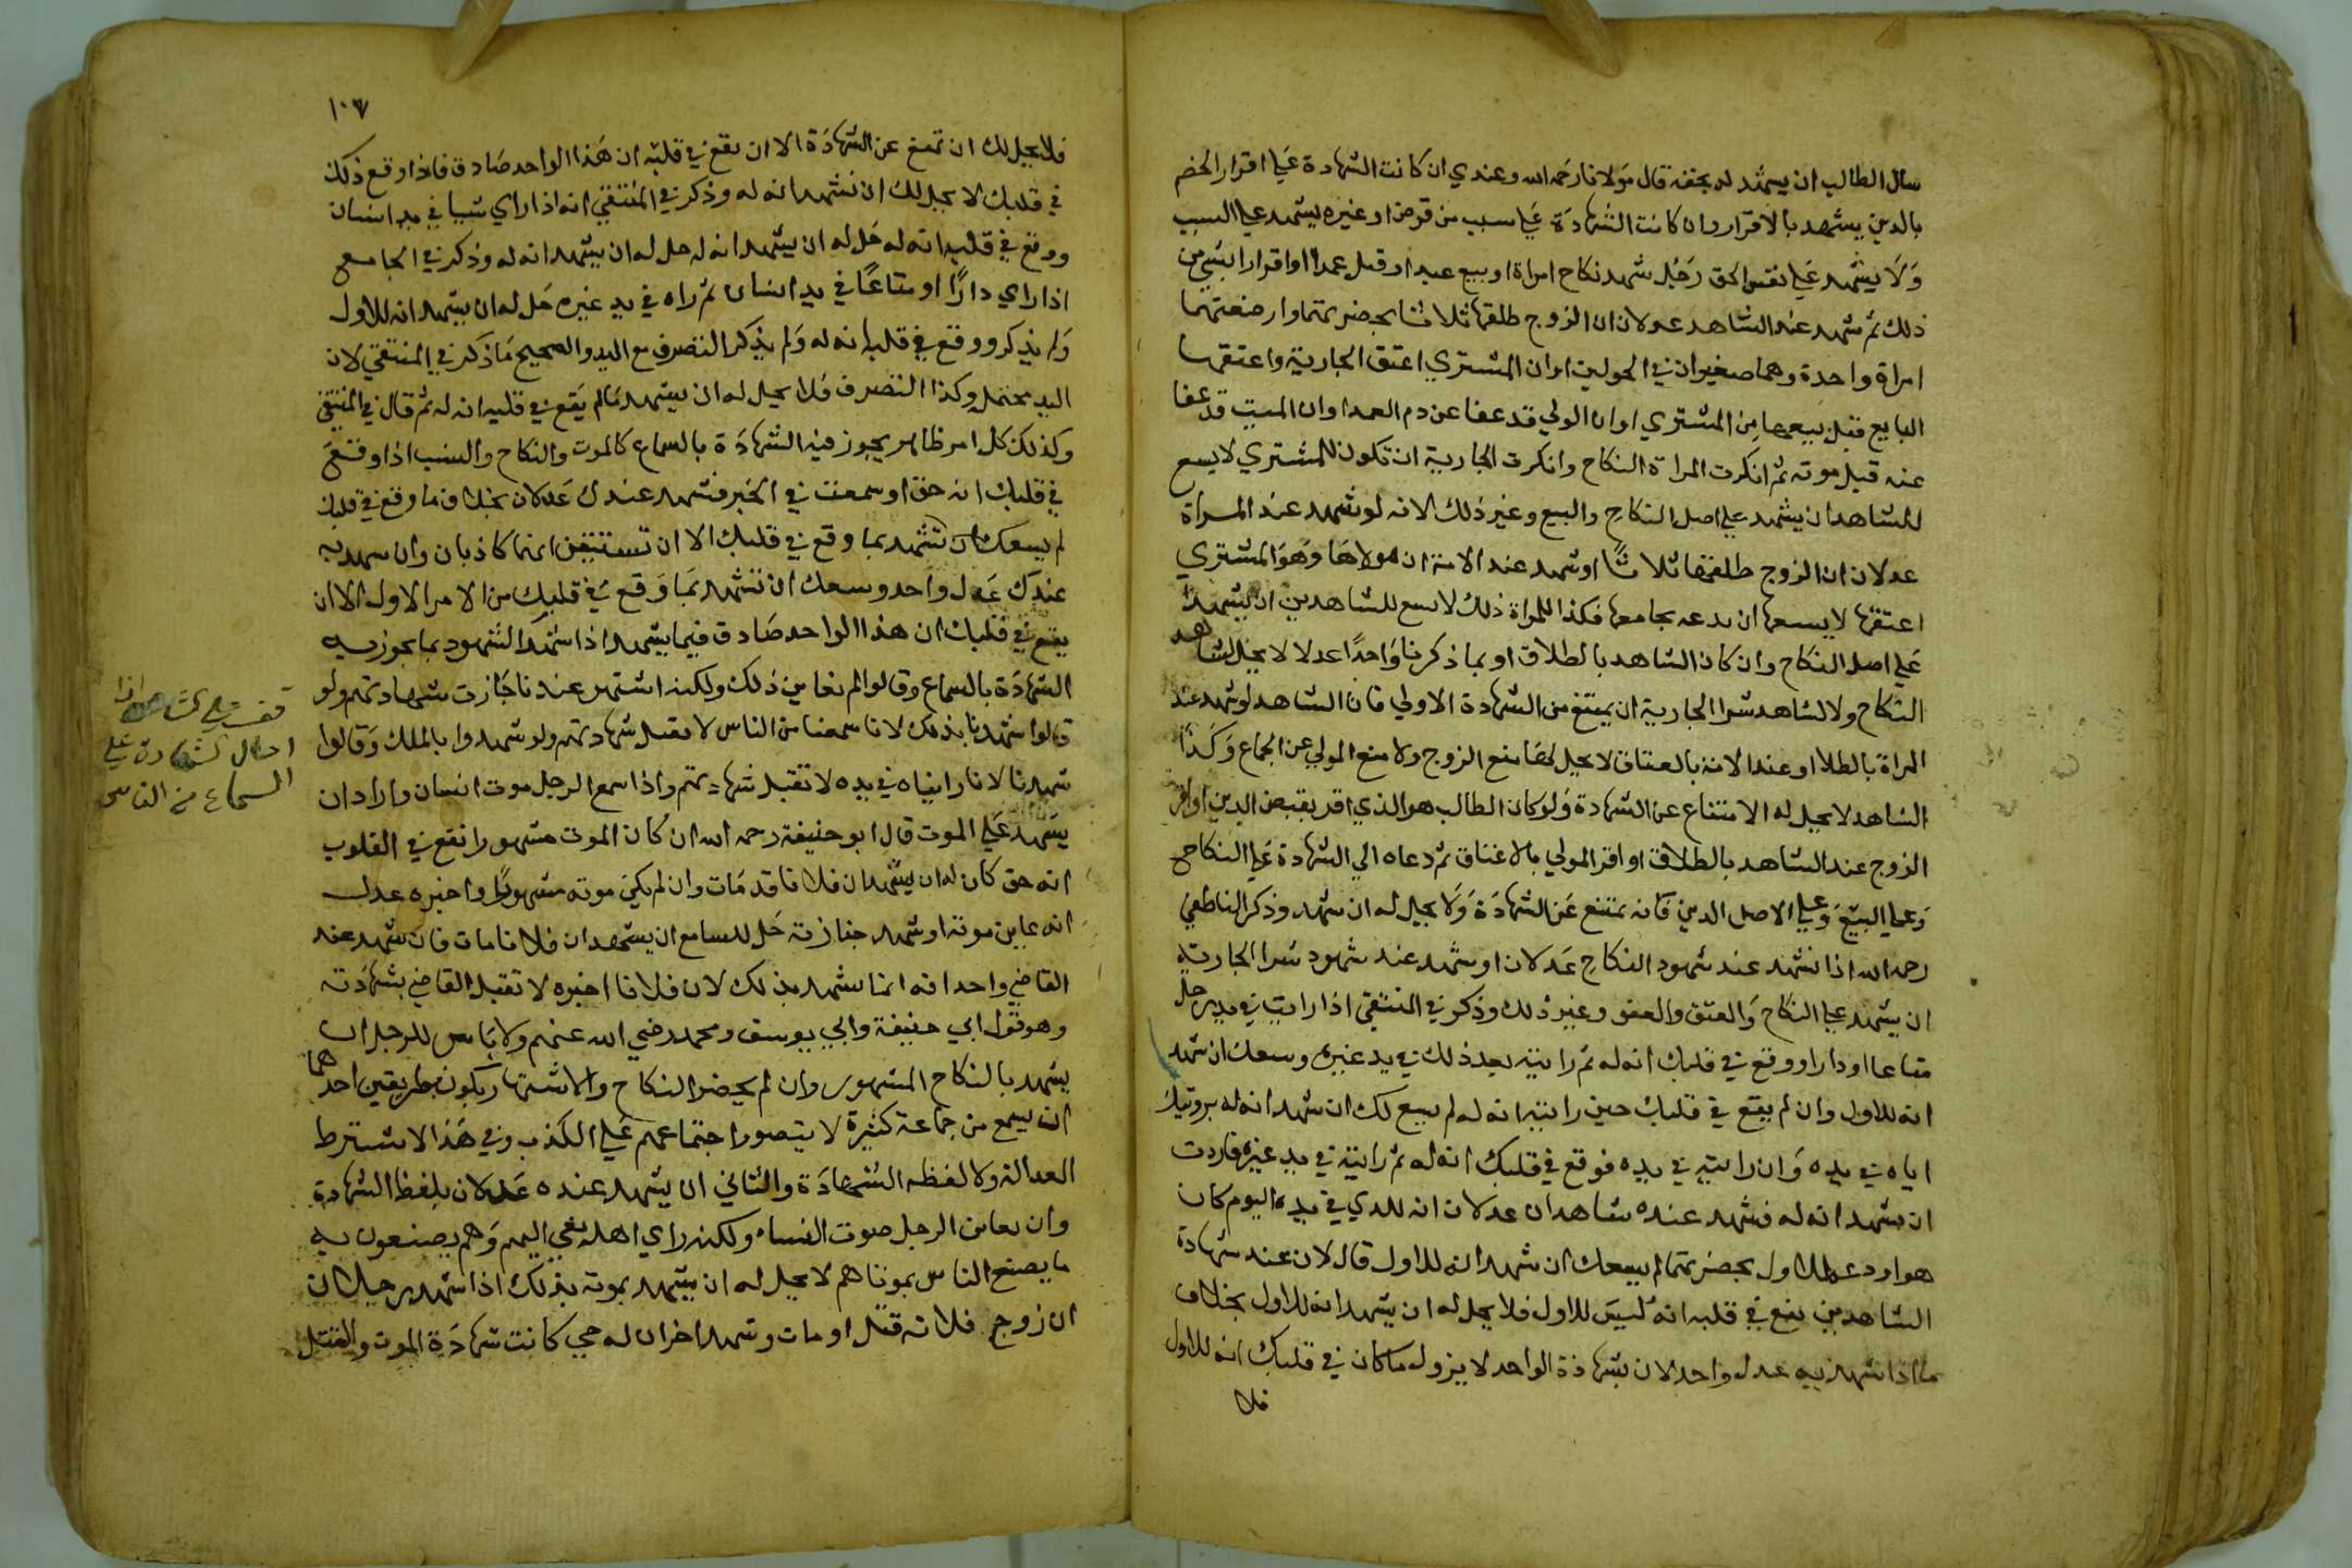 سال الطالب ان يشهد له بحقه قال مولانا رحمه الله وعندي ان كانت الشهادة علي اقرار الخصم
بالدين يشهد بالاقرار وان كانت الشهادة علي سبب من قرض او غيره يشهد علي السبب
ولا يشهد علي نفس الحق رجل شهد نكاح امراة او بيع عبد او قتل عمد او اقرار بشي من
ذلك ثم شهد عند الشاهد عدلان ان الزوج طلقها ثلاثا بحضرتهما او ارضعتهما
امراة واحدة وهما صغيران في الحولين او ان المشتري اعتق الجارية او اعتقها
البايع قبل بيعها من المشتري او ان الولي قد عفا عن دم العمد او ان الميت قد عفا
عنه قبل موته ثم انكرت المراة النكاح وانكرت الجارية ان تكون للمشتري لا يسع
للشاهد ان يشهد علي اصل النكاح والبيع وغير ذلك لانه لو شهد عند المراة
عدلان ان الزوج طلقها ثلاثا او شهد عند الامة ان مولاها وهو المشتري
اعتقها لا يسعها ان تدعه يجامعها فكذا للمراة ذلك لا يسع للشاهدين ان يشهدا
علي اصل النكاح وان كان الشاهد بالطلاق او بما ذكرنا واحدا عدلا لا يحل لشاهد
النكاح ولا لشاهد شرا الجارية ان يمتنع من الشهادة الاولي فان الشاهد لو شهد عند
المراة بالطلاق او عند الامة بالعتاق لا يحل لها منع الزوج ولا منع المولي عن الجماع وكذا
الشاهد لا يحل له الامتناع عن الشهادة ولو كان الطالب هو الذي اقر بقبض الدين او اقر
الزوج عند الشاهد بالطلاق او اقر المولي بالاعتاق ثم دعاه الي الشهادة علي النكاح
وعلي البيع وعلي الاصل الدين فانه يمتنع عن الشهادة ولا يحل له ان يشهد وذكر الناطفي
رحمه الله اذا شهد عند شهود النكاح عدلان او شهد عند شهود شرا الجارية
ان يشهد علي النكاح والعتق والعفو وغير ذلك وذكر في المنتقي اذا رايت في يد رجل
متاعا او دارا ووقع في قلبك انه له ثم رايته بعد ذلك في يد غيره وسعك ان تشهد
انه للاول وان لم يقع في قلبك حين رايته انه له لم يسع لك ان تشهد انه له برويتك
اياه في يده وان رايته في يده فوقع في قلبك انه له ثم رايته في يد غيره فاردت
ان تشهد انه له فشهد عنده شاهدان عدلان انه للذي في يده اليوم كان
هو اودعه الاول بحضرتهما لم يسعك ان تشهد انه للاول قال لان عند شهادة
الشاهدين يقع في قلبه انه ليس للاول فلا يحل له ان يشهد انه للاول بخلاف
ما اذا شهد به عدل واحد لان بشهادة الواحد لا يزول ما كان في قلبك انه للاول
فلا
١٠٧
فلا يحل لك ان تمتنع عن الشهادة الا ان يقع في قلبه ان هذا الواحد صادق فاذا وقع ذلك
في قلبك لا يحل لك ان تشهد انه له وذكر في المنتقي انه اذا راي شيا في يد انسان
ووقع في قلبه انه له حل له ان يشهد انه له حل له ان يشهد انه له وذكر في الجامع
اذا راي دارا او متاعا في يد انسان ثم راه في يد غيره حل له ان يشهد انه للاول
ولم يذكر ووقع في قلبه انه له ولم يذكر التصرف مع اليد والصحيح ما ذكر في المنتقي لان
اليد محتمل وكذا التصرف فلا يحل له ان يشهد ما لم يقع في قلبه انه له ثم قال في المنتقي
وكذلك كل امر ظاهر يجوز فيه الشهادة بالسماع كالموت والنكاح والنسب اذا وقع
في قلبك انه حق او سمعت في الخبر فشهد عندك عدلان بخلاف ما وقع في قلبك
لم يسعك ان تشهد بما وقع في قلبك الا ان تستيقن انهما كاذبان وان شهد به
عندك عدل واحد وسعك ان تشهد بما وقع في قلبك من الامر الاول الا ان
يقع في قلبك ان هذا الواحد صادق فيما يشهد اذا شهد الشهود بما يجوز به
الشهادة بالسماع وقالوا لم نعاين ذلك ولكنه اشتهر عندنا جازت شهادتهم ولو
قالوا شهدنا بذلك لانا سمعنا من الناس لا تقبل شهادتهم ولو شهدوا بالملك وقالوا
شهدنا لانا رايناه في يده لا تقبل شهادتهم واذا سمع الرجل موت انسان واراد ان
يشهد علي الموت قال ابو حنيفة رحمه الله ان كان الموت مشهورا تقع في القلوب
انه حق كان له ان يشهد ان فلانا قد مات وان لم يكن موته مشهورا واخبره عدل
انه عاين موته او شهد جنازته حل للسامع ان يشهد ان فلانا مات فان شهد عند
القاضي واحد انه انما يشهد بذلك لان فلانا اخبره لا تقبل القاضي بشهادته
وهو قول ابي حنيفة وابي يوسف ومحمد رضي الله عنهم ولا باس للرجل ان
يشهد بالنكاح المشهور وان لم يحضر النكاح والاشتهار يكون بطريقين احدهما
ان يسمع من جماعة كثيرة لا يتصور اجتماعهم علي الكذب وفي هذا لا يشترط
العدالة ولا لفظه الشهادة والثاني ان يشهد عنده عدلان بلفظ الشهادة
وان عاين الرجل صوت النساء ولكنه راي اهله نعي اليهم وهم يصنعون به
ما يصنع الناس بموتاهم لا يحل له ان يشهد بموته بذلك اذا شهد رجلان
ان زوج فلانة قتل او مات وشهد اخران له حي كانت شهادة الموت والقتل
السماع من الناس